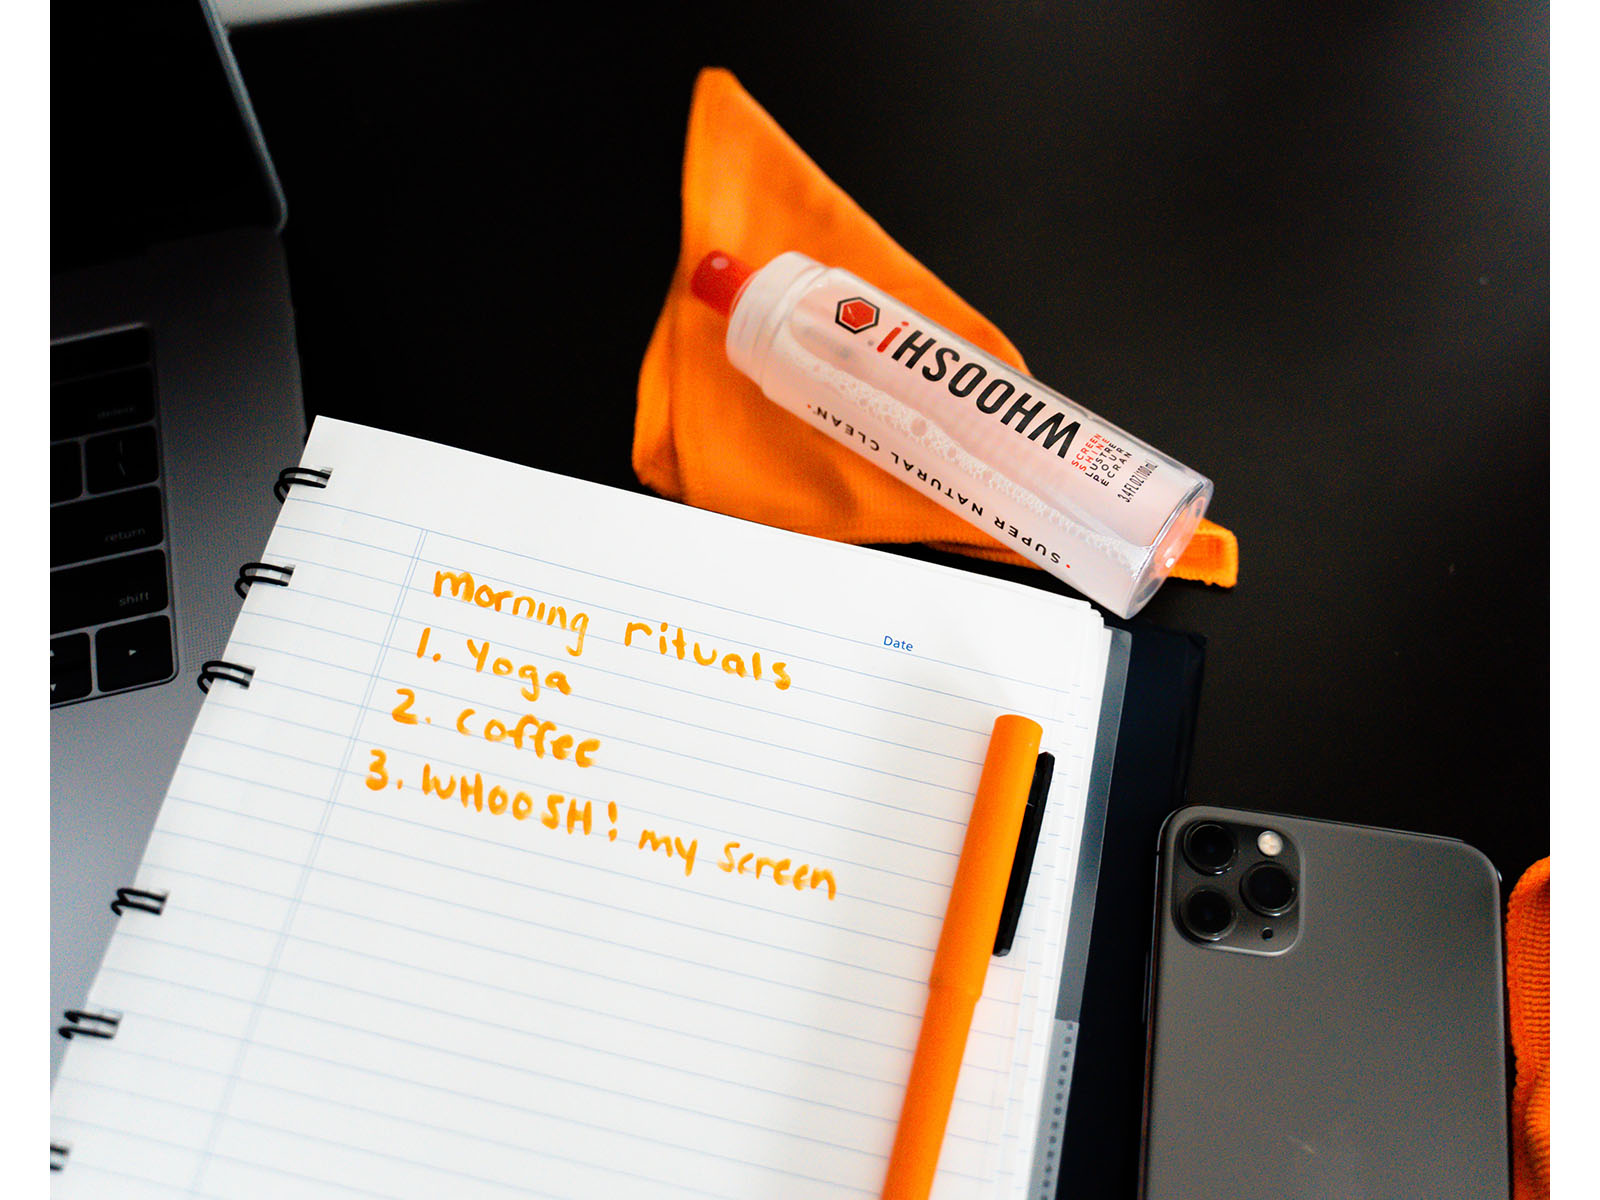 delete
return
shift
WHOOSH!
SCREEN
SHINE
LUSTRE
POUR
ÉCRAN
3.4 FL OZ (100 mL)
• SUPER NATURAL CLEAN •
Date
Morning rituals
1. Yoga
2. coffee
3. WHOOSH! my screen